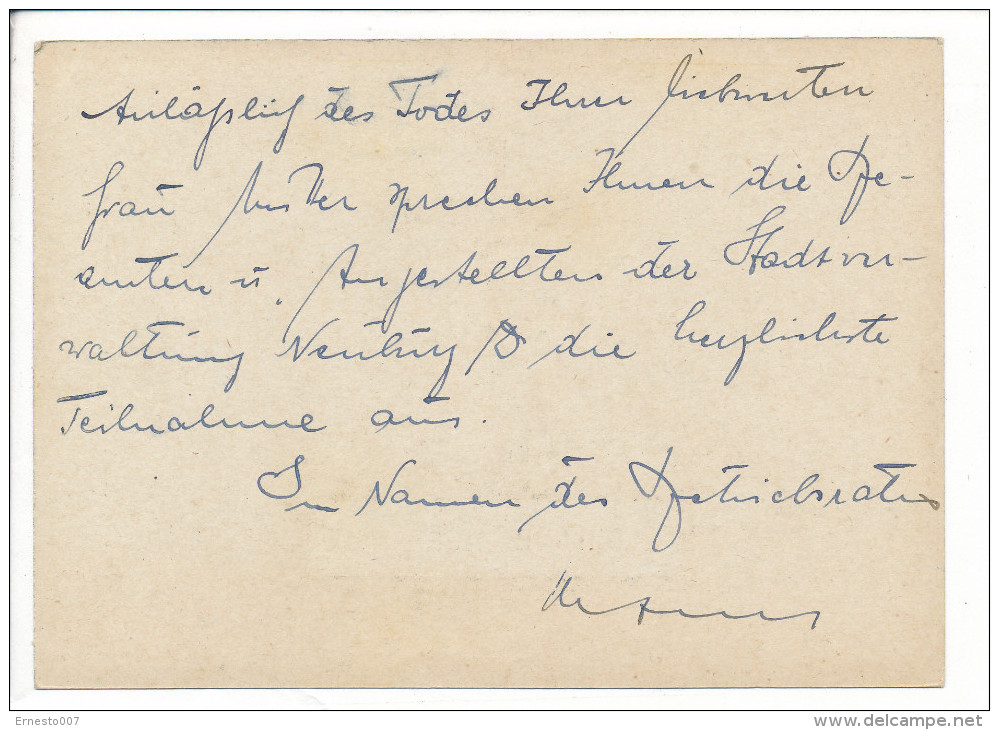 Anläßlich des Todes Ihrer liebwerten
Frau Mutter sprechen Ihnen die Be-
amten u. Angestellten der Stadtver-
waltung Neuburg /D die herzlichste
Teilnahme aus.
Im Namen des Betriebsrates
Ernesto007
delcampe.net